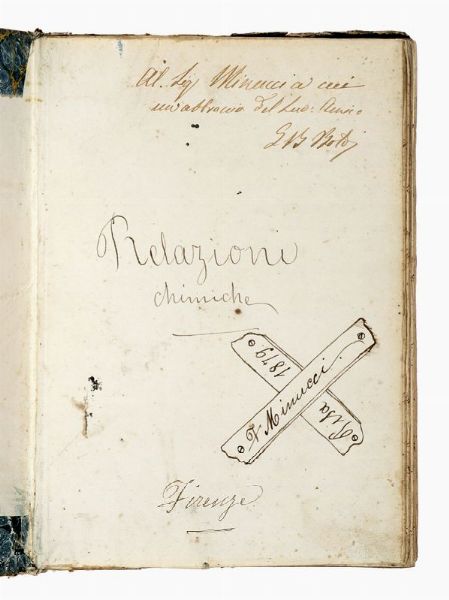 Al Sig Minucci a cui
un'abbraccio del suo Amico
G B
Relazioni
chimiche
1879
V Minucci
Pisa
Firenze